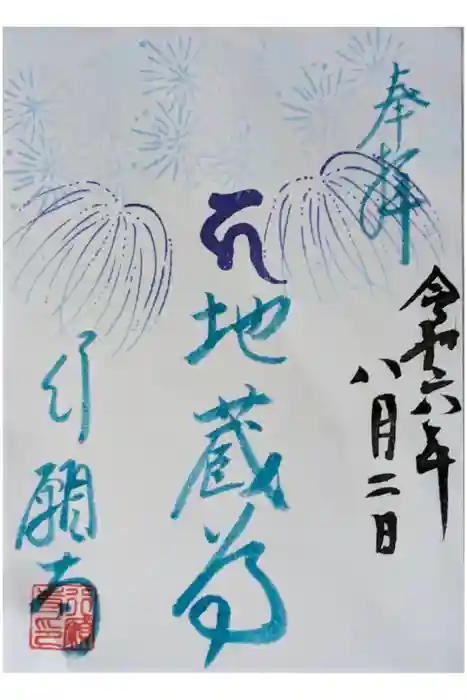 奉拝
令和六年
八月二日
𑖮
地蔵尊
行願寺
行願寺印